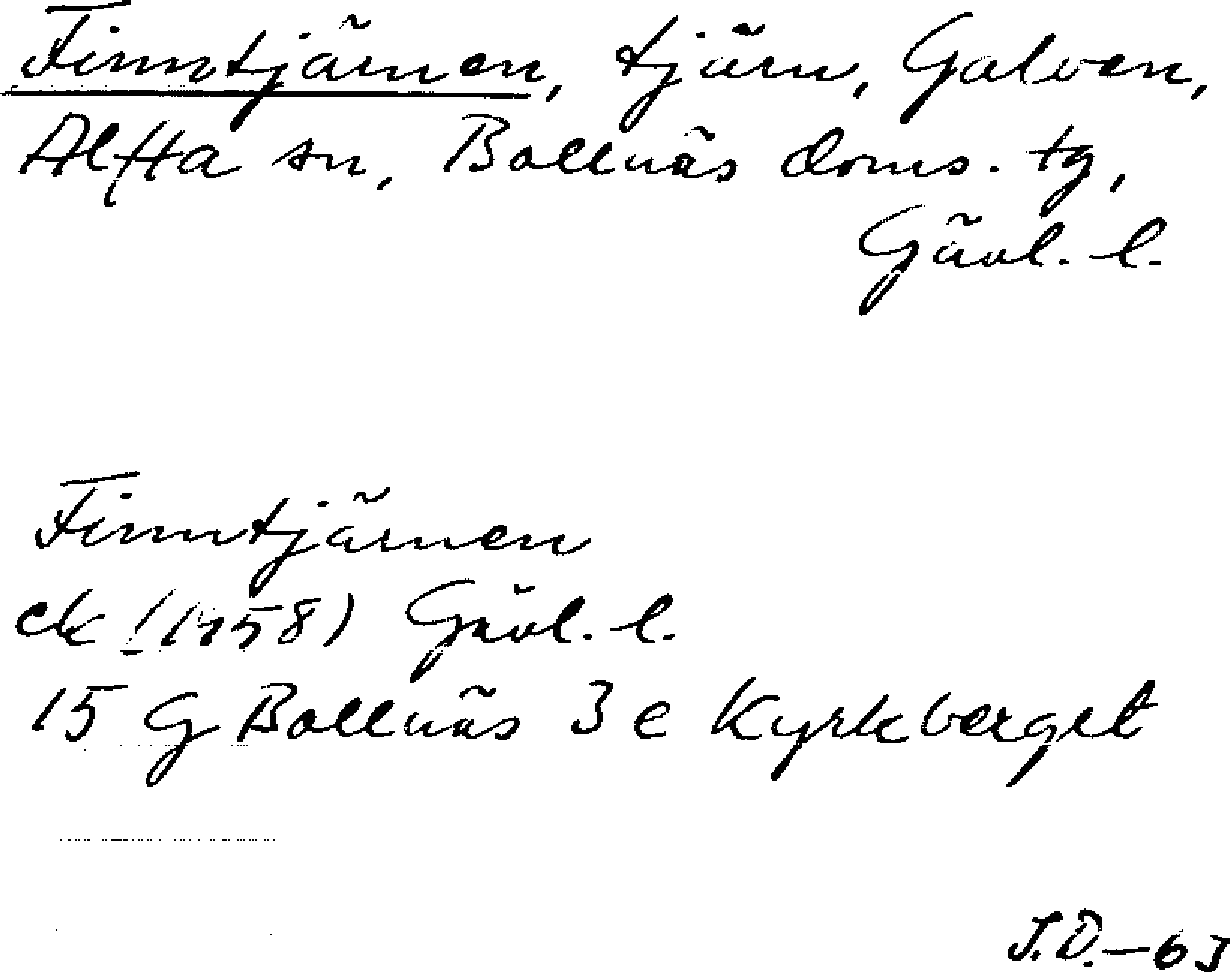 Finntjärnen, tjärn, Galven,
Alfta sn, Bollnäs doms. tg,
Gävl. l.
Finntjärnen
ek (1958) Gävl. l.
15 G Bollnäs 3 e Kyrkberget
J.D.–63